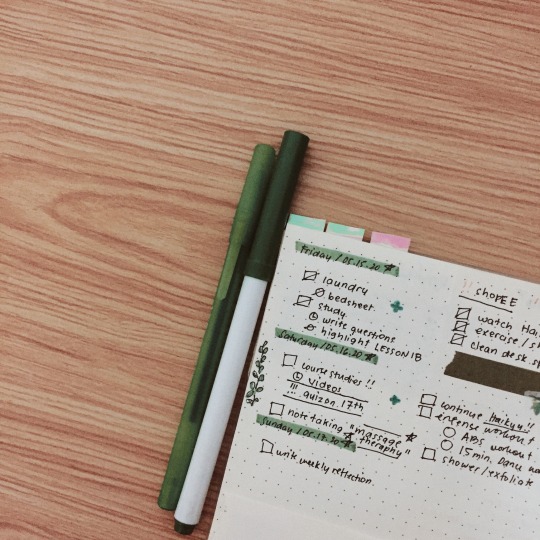 Friday / 05.15.20
laundry
bedsheet
study
write questions
highlight LESSON 1B
Saturday / 05.16.20
course studies !!
videos
!!! quiz on 17th
note taking "massage
theraphy"
Sunday / 05.17.20
write weekly reflection.
SHOPEE
watch Hai
exercise / s
clean desk s
continue Haikyu!!
intense workout
ABS workout
15 min. Dance wo
shower / exfoliate